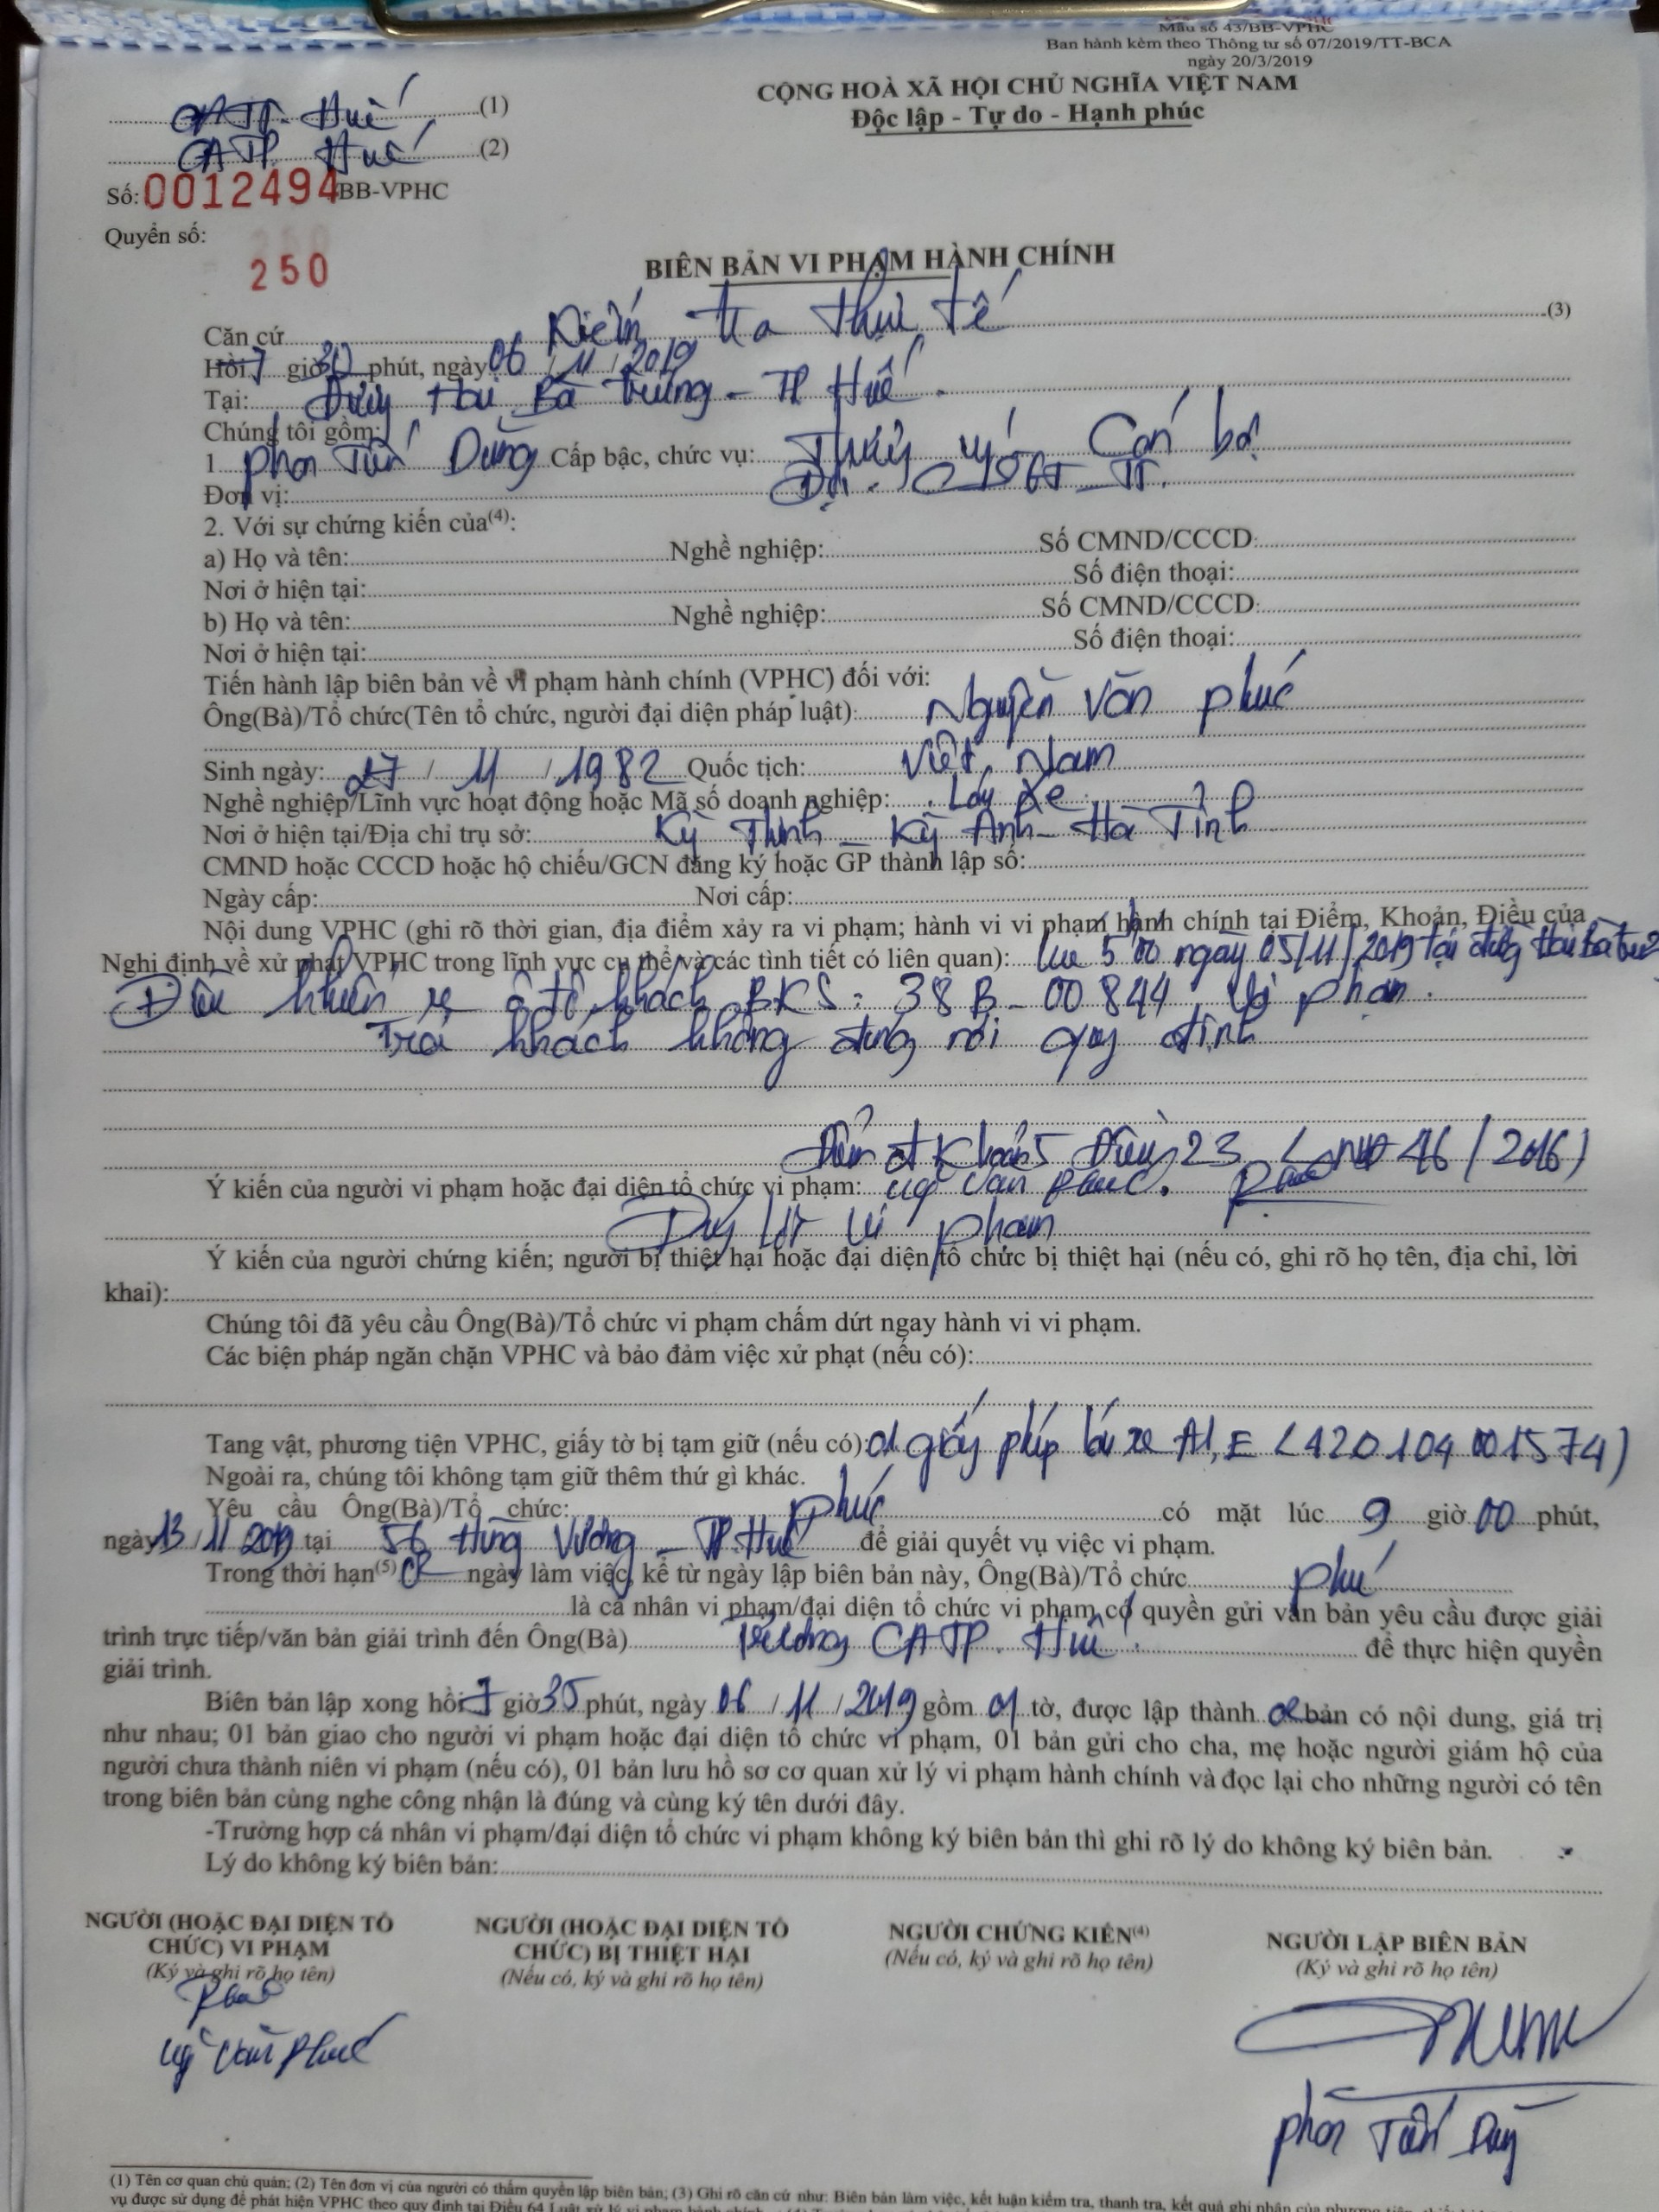 Mẫu số 43/BB-VPHC
Ban hành kèm theo Thông tư số 07/2019/TT-BCA
ngày 20/3/2019
CỘNG HOÀ XÃ HỘI CHỦ NGHĨA VIỆT NAM
Độc lập - Tự do - Hạnh phúc
CATP. Huế (1)
CATP. Huế (2)
Số: 0012494 BB-VPHC
Quyển số: 250
BIÊN BẢN VI PHẠM HÀNH CHÍNH
Căn cứ Kiểm tra thực tế (3)
Hồi 7 giờ 30 phút, ngày 06 / 11 / 2019
Tại: Đường Hai Bà Trưng - TP Huế.
Chúng tôi gồm:
1 Phan Tiến Dũng Cấp bậc, chức vụ: Thiếu úy Cán bộ
Đơn vị: Đội CSGT - TT.
2. Với sự chứng kiến của(4):
a) Họ và tên: Nghề nghiệp: Số CMND/CCCD:
Nơi ở hiện tại: Số điện thoại:
b) Họ và tên: Nghề nghiệp: Số CMND/CCCD:
Nơi ở hiện tại: Số điện thoại:
Tiến hành lập biên bản về vi phạm hành chính (VPHC) đối với:
Ông(Bà)/Tổ chức(Tên tổ chức, người đại diện pháp luật): Nguyễn Văn Phúc
Sinh ngày: 27 / 11 / 1982 Quốc tịch: Việt Nam
Nghề nghiệp/Lĩnh vực hoạt động hoặc Mã số doanh nghiệp: Lái xe
Nơi ở hiện tại/Địa chỉ trụ sở: Kỳ Thịnh - Kỳ Anh - Hà Tĩnh
CMND hoặc CCCD hoặc hộ chiếu/GCN đăng ký hoặc GP thành lập số:
Ngày cấp: Nơi cấp:
Nội dung VPHC (ghi rõ thời gian, địa điểm xảy ra vi phạm; hành vi vi phạm hành chính tại Điểm, Khoản, Điều của
Nghị định về xử phạt VPHC trong lĩnh vực cụ thể và các tình tiết có liên quan): lúc 5h00 ngày 05/11/2019 tại đường Hai Bà Trưng
Điều khiển xe ô tô khách BKS: 38B-00844 vi phạm.
Trả khách không đúng nơi quy định
Điểm Khoản 5 Điều 23 NĐ 46/2016)
Ý kiến của người vi phạm hoặc đại diện tổ chức vi phạm: Ng Văn Phúc. Phúc
lỗi vi phạm
Ý kiến của người chứng kiến; người bị thiệt hại hoặc đại diện tổ chức bị thiệt hại (nếu có, ghi rõ họ tên, địa chỉ, lời
khai):
Chúng tôi đã yêu cầu Ông(Bà)/Tổ chức vi phạm chấm dứt ngay hành vi vi phạm.
Các biện pháp ngăn chặn VPHC và bảo đảm việc xử phạt (nếu có):
Tang vật, phương tiện VPHC, giấy tờ bị tạm giữ (nếu có): 01 giấy phép lái xe A1, E (420104001574)
Ngoài ra, chúng tôi không tạm giữ thêm thứ gì khác.
Yêu cầu Ông(Bà)/Tổ chức: Phúc có mặt lúc 9 giờ 00 phút,
ngày 13/11/2019 tại 56 Hùng Vương - TP Huế để giải quyết vụ việc vi phạm.
Trong thời hạn(5) 02 ngày làm việc, kể từ ngày lập biên bản này, Ông(Bà)/Tổ chức Phúc
là cá nhân vi phạm/đại diện tổ chức vi phạm có quyền gửi văn bản yêu cầu được giải
trình trực tiếp/văn bản giải trình đến Ông(Bà) Trưởng CATP. Huế để thực hiện quyền
giải trình.
Biên bản lập xong hồi 7 giờ 35 phút, ngày 06 / 11 / 2019 gồm 01 tờ, được lập thành 02 bản có nội dung, giá trị
như nhau; 01 bản giao cho người vi phạm hoặc đại diện tổ chức vi phạm, 01 bản gửi cho cha, mẹ hoặc người giám hộ của
người chưa thành niên vi phạm (nếu có), 01 bản lưu hồ sơ cơ quan xử lý vi phạm hành chính và đọc lại cho những người có tên
trong biên bản cùng nghe công nhận là đúng và cùng ký tên dưới đây.
-Trường hợp cá nhân vi phạm/đại diện tổ chức vi phạm không ký biên bản thì ghi rõ lý do không ký biên bản.
Lý do không ký biên bản:
NGƯỜI (HOẶC ĐẠI DIỆN TỔ
CHỨC) VI PHẠM
(Ký và ghi rõ họ tên)
Phúc
Ng Văn Phúc
NGƯỜI (HOẶC ĐẠI DIỆN TỔ
CHỨC) BỊ THIỆT HẠI
(Nếu có, ký và ghi rõ họ tên)
NGƯỜI CHỨNG KIẾN(4)
(Nếu có, ký và ghi rõ họ tên)
NGƯỜI LẬP BIÊN BẢN
(Ký và ghi rõ họ tên)
Phan Tiến Dũng
(1) Tên cơ quan chủ quản; (2) Tên đơn vị của người có thẩm quyền lập biên bản; (3) Ghi rõ căn cứ như: Biên bản làm việc, kết luận kiểm tra, thanh tra, kết quả ghi nhận của phương tiện
vụ được sử dụng để phát hiện VPHC theo quy định tại Điều 64 Luật xử lý vi phạm hành chính